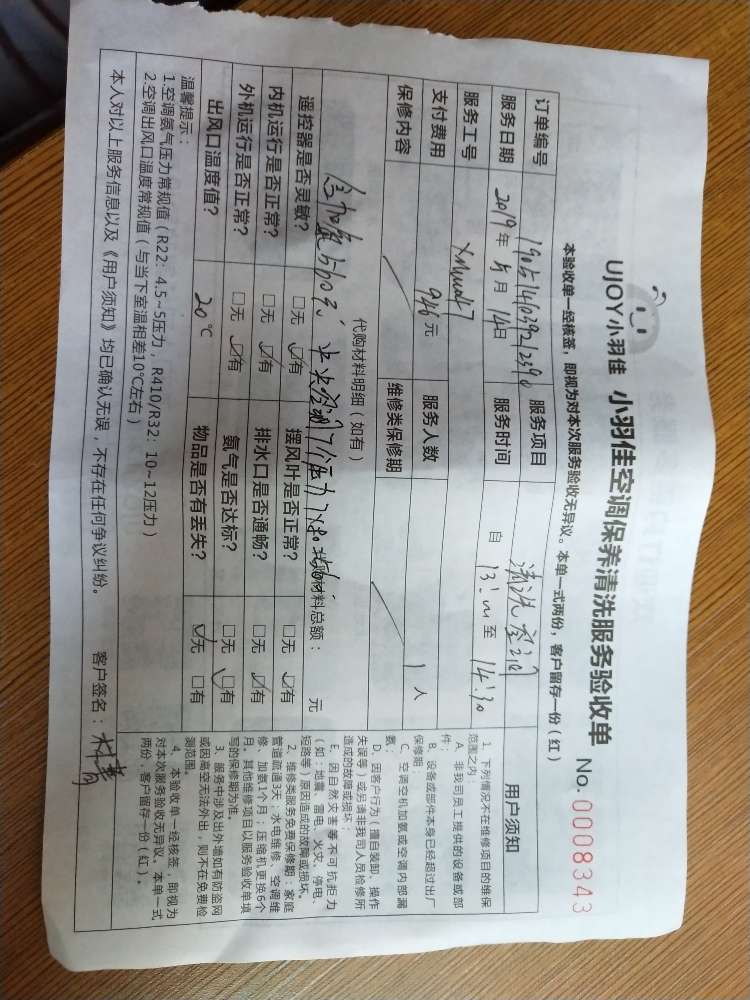 UJOY小羽佳 小羽佳空调保养清洗服务验收单
No. 0008343
本验收单一经核签，即视为对本次服务验收无异议。本单一式两份，客户留存一份(红)
订单编号 服务项目 清洗空调
服务日期 2019年5月14日 服务时间 自 至 14:30
服务工号
支付费用 946元 服务人数 1人
保修内容 维修类保修期
代购材料明细(如有)
代购材料总额： 元
遥控器是否灵敏？ □无 ☑有 摆风叶是否正常？ □无 ☑有
内机运行是否正常？ □无 ☑有 排水口是否通畅？ □无 ☑有
外机运行是否正常？ □无 ☑有 氨气是否达标？ □无 ☑有
出风口温度值？ 20℃ 物品是否有丢失？ ☑无 □有
温馨提示：
1.空调氨气压力常规值(R22：4.5~5压力，R410/R32：10~12压力)
2.空调出风口温度常规值(与当下室温相差10℃左右)
本人对以上服务信息以及《用户须知》均已确认无误，不存在任何争议纠纷。 客户签名：
用户须知
1、下列情况不在维修项目的维保
范围之内：
A、非我司员工提供的设备或部
件；
B、设备或部件本身已经超过出厂
保修期；
C、空调空机加氨或空调内部漏
氨；
D、因客户行为(擅自装卸、操作
失误等)或另请非我司人员检修所
造成的故障或损坏；
E、因自然灾害等不可抗拒力
(如：地震、雷电、火灾、停电、
短路等)原因造成的故障或损坏。
2、维修类服务免费保修期：家庭
管道疏通3天；水电维修、空调维
修、加氨1个月；压缩机更换6个
月。其他维修项目以服务验收单填
写的保修期为准。
3、服务中涉及出外墙如有防盗网
或因高空无法外出，则不在免费检
测范围。
4、本验收单一经核签，即视为
对本次服务验收无异议。本单一式
两份，客户留存一份(红)。